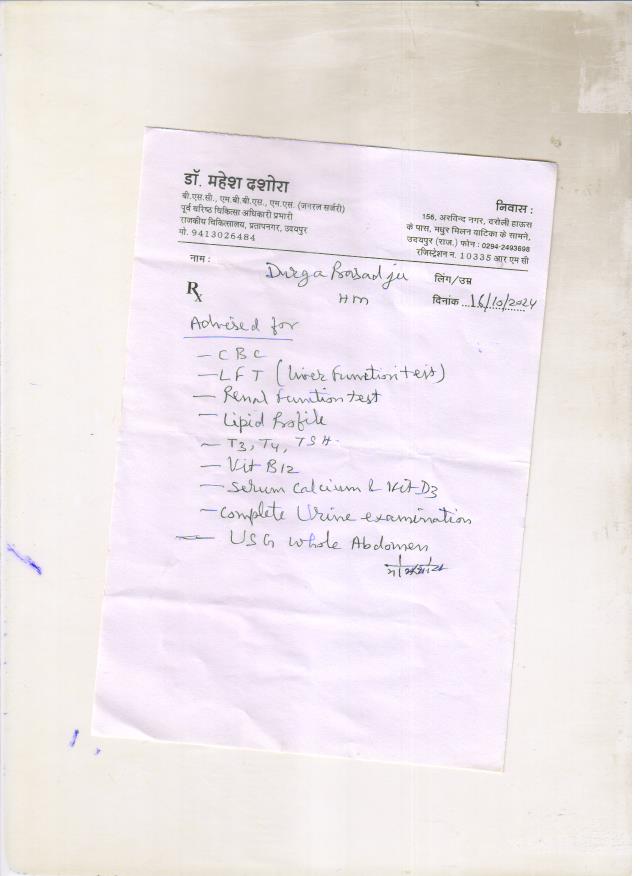 डॉ. महेश दशोरा
बी.एस.सी., एम.बी.बी.एस., एम.एस. (जनरल सर्जरी)
पूर्व वरिष्ठ चिकित्सा अधिकारी प्रभारी
राजकीय चिकित्सालय, प्रतापनगर, उदयपुर
मो. 9413026484
निवास :
156, अरविन्द नगर, दरोली हाऊस
के पास, मधुर मिलन वाटिका के सामने,
उदयपुर (राज.) फोन : 0294-2493698
रजिस्ट्रेशन न. 10335 आर एम सी
नाम : Durga Prasad ji लिंग/उम्र
Rx HM दिनांक ...16/10/2024
Advised for
- CBC
- LFT (liver function test)
- Renal function test
- Lipid Profile
- T3, T4, TSH.
- Vit B12
- Serum calcium & Vit D3
- complete Urine examination
- USG whole Abdomen